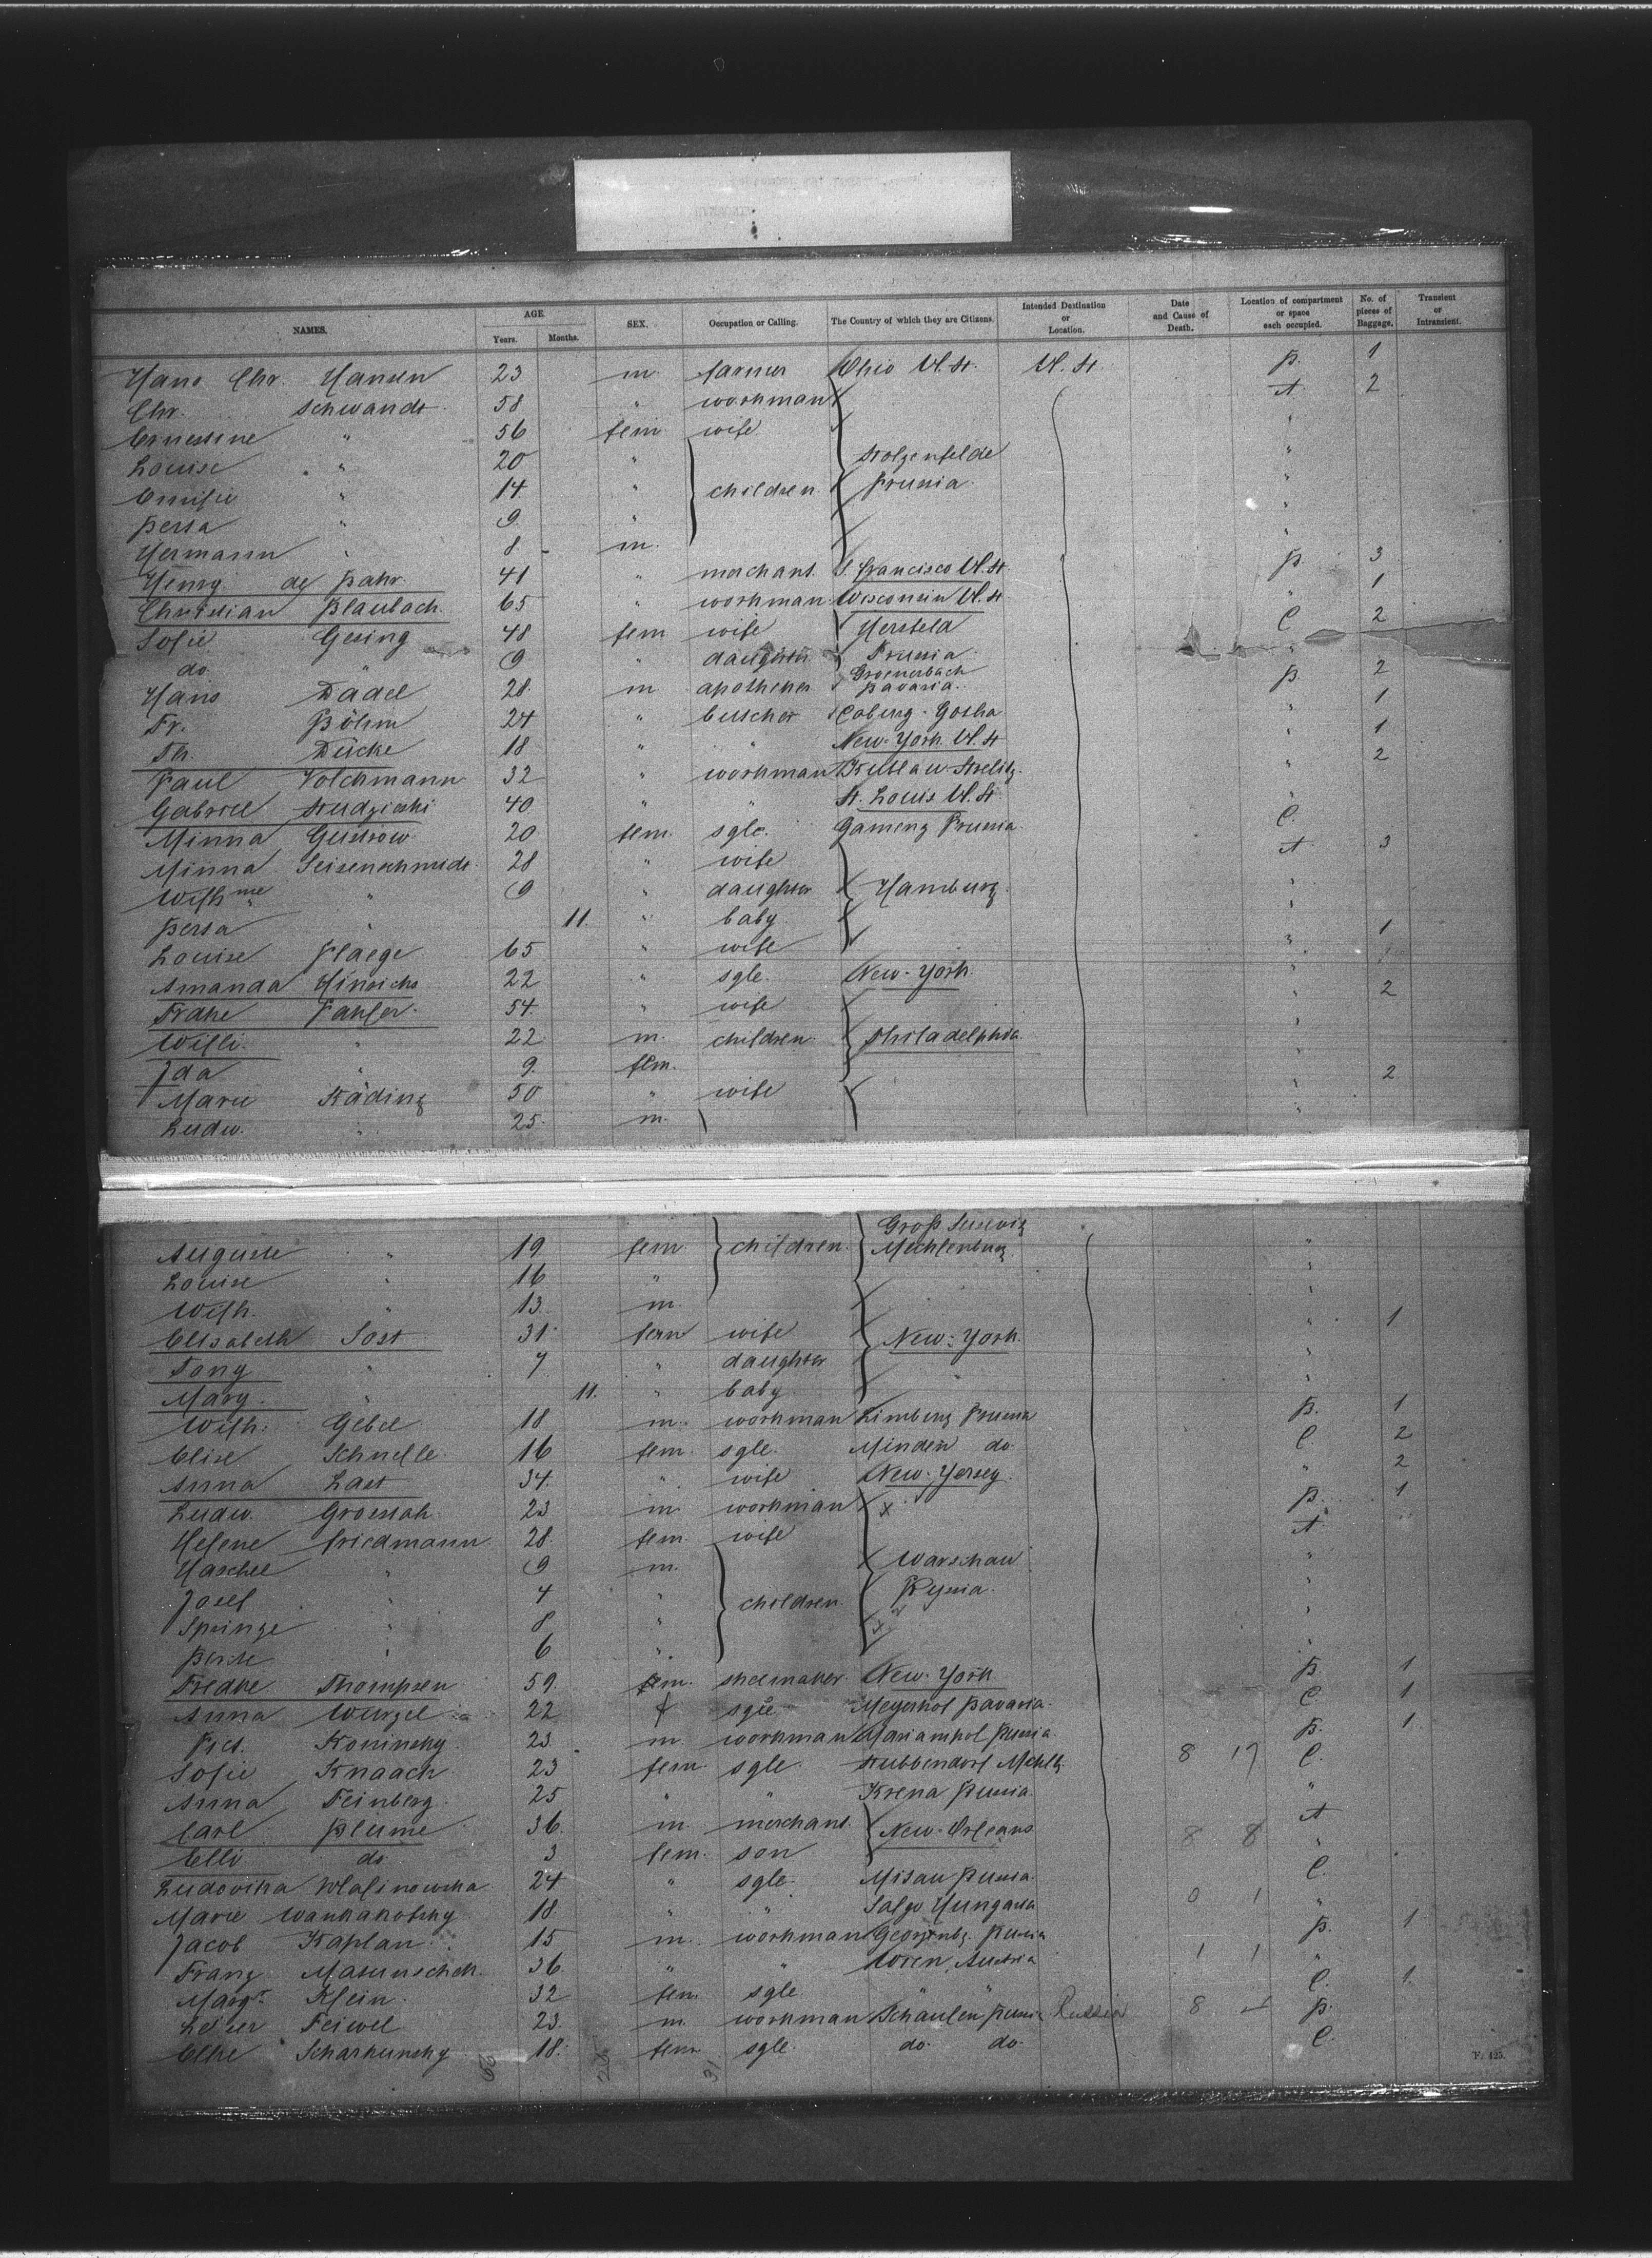 NAMES. AGE. Years. Months. SEX. Occupation or Calling. The Country of which they are Citizens. Intended Destination or Location. Date and Cause of Death. Location of compartment or space each occupied. No. of pieces of Baggage. Transient or Intransient.
Hans Chr. Hansen 23 m. farmer Ohio U. St. U. St. B. 1
Chr. Schwandt 58 " workman A 2
Ernestine " 56 fem wife "
Louise " 20 " Stolzenfelde "
Emilie " 14 " children Prussia "
Bersa " 9 " "
Hermann " 8 m. "
Henry de Bahr 41 " merchant S. Francisco U. St. B. 3
Christian Blaubach 65 " workman Wisconsin U. St. " 1
Sofie Gesing 48 fem wife Hersfeld C 2
do. " 9 " daughter Prussia "
Hans Dadel 28 m apotheker Groenenbach Bavaria B. 2
Fr. Böhm 24 " butcher Coburg-Gotha " 1
Th. Dücke 18 " " New-York U. St " 1
Paul Volchmann 32 " workman Strelitz " 2
Gabriel 40 " " St. Louis U. St. "
Minna Gustrow 20 fem. sgle. Prussia C.
Minna Seisenschmidt 28 " wife A 3
Wilhme " 9 " daughter Hamburg "
Bersa " 11. " baby "
Louise Plaege 65 " wife " 1
Amanda Hinrichs 22 " sgle. New-York "
Fradke 54. " wife " 2
Willi " 22 m. children Philadelphia "
Ida " 9 fem. "
Marie Käding 50 " wife " 2
Ludw. " 25 m. "
Gross
Auguste " 19 fem children Mecklenburg "
Louise " 16 " "
Wilh. " 13 m. "
Elisabeth Jost 31 fem wife New-York " 1
Fany " 7 " daughter "
Mary " 11. " baby "
Wilh. Gebel 18 m. workman Limburg Prussia B. 1
Elise Schnelle 16 fem. sgle. Minden do. C. 2
Anna Last 34. " wife New-Yersey " 2
Ludw. 23 m. workman x B. 1
Helene Friedmann 28. fem. wife A
Haschel " 9 m. Warschau "
Josef " 4 " children Russia "
Springe " 8 " "
" 6 " "
Fredke Thompsen 59 m. shoemaker New-York B. 1
Anna Wurzel 22 f sgle Meyerhof Bavaria C. 1
Koninsky 23 m. workman Mariamhol Russia B. 1
Sofie Knaack 23 fem. sgle. Stubbendorf Mcklbg. 8 17 C.
Anna Feinberg 25 " " Krena Russia "
Carl Blume 36 m merchant New-Orleans A
Elli do 3 fem. son 8 8 "
Ludovika Walinowska 24 " sgle. Mitau Russia C.
Marie 18. " " Hungaria 0 1 "
Jacob Kaplan 15 m. workman Russia B. 1
Franz 36. " " Wien Austria 1 1 "
Margt. Klein 32 fem sgle " " C. 1
Leiser Feiwel 23. m. workman Schaulen Russia Russia 8 4 B.
Elke Scharkunsky 18. fem. sgle. do. do. C.
31
F. 425.